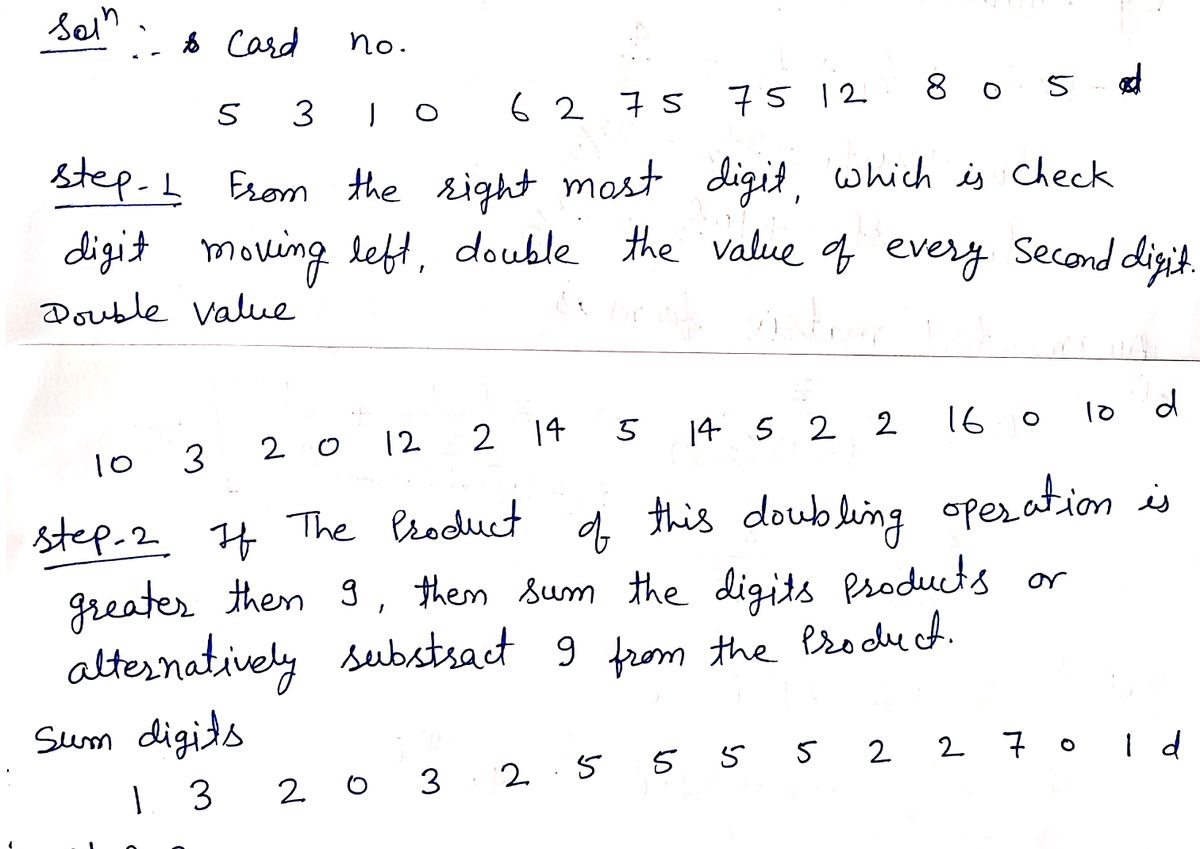 Solⁿ :- Card no.
5 3 1 0 6 2 7 5 7 5 1 2 8 0 5 d
Step-1 From the right most digit, which is Check
digit moving left, double the value of every Second digit.
Double value
10 3 2 0 12 2 14 5 14 5 2 2 16 0 10 d
Step-2 If The Product of this doubling operation is
greater then 9, then sum the digits Products or
alternatively substract 9 from the Product.
Sum digits
1 3 2 0 3 2 5 5 5 5 2 2 7 0 1 d